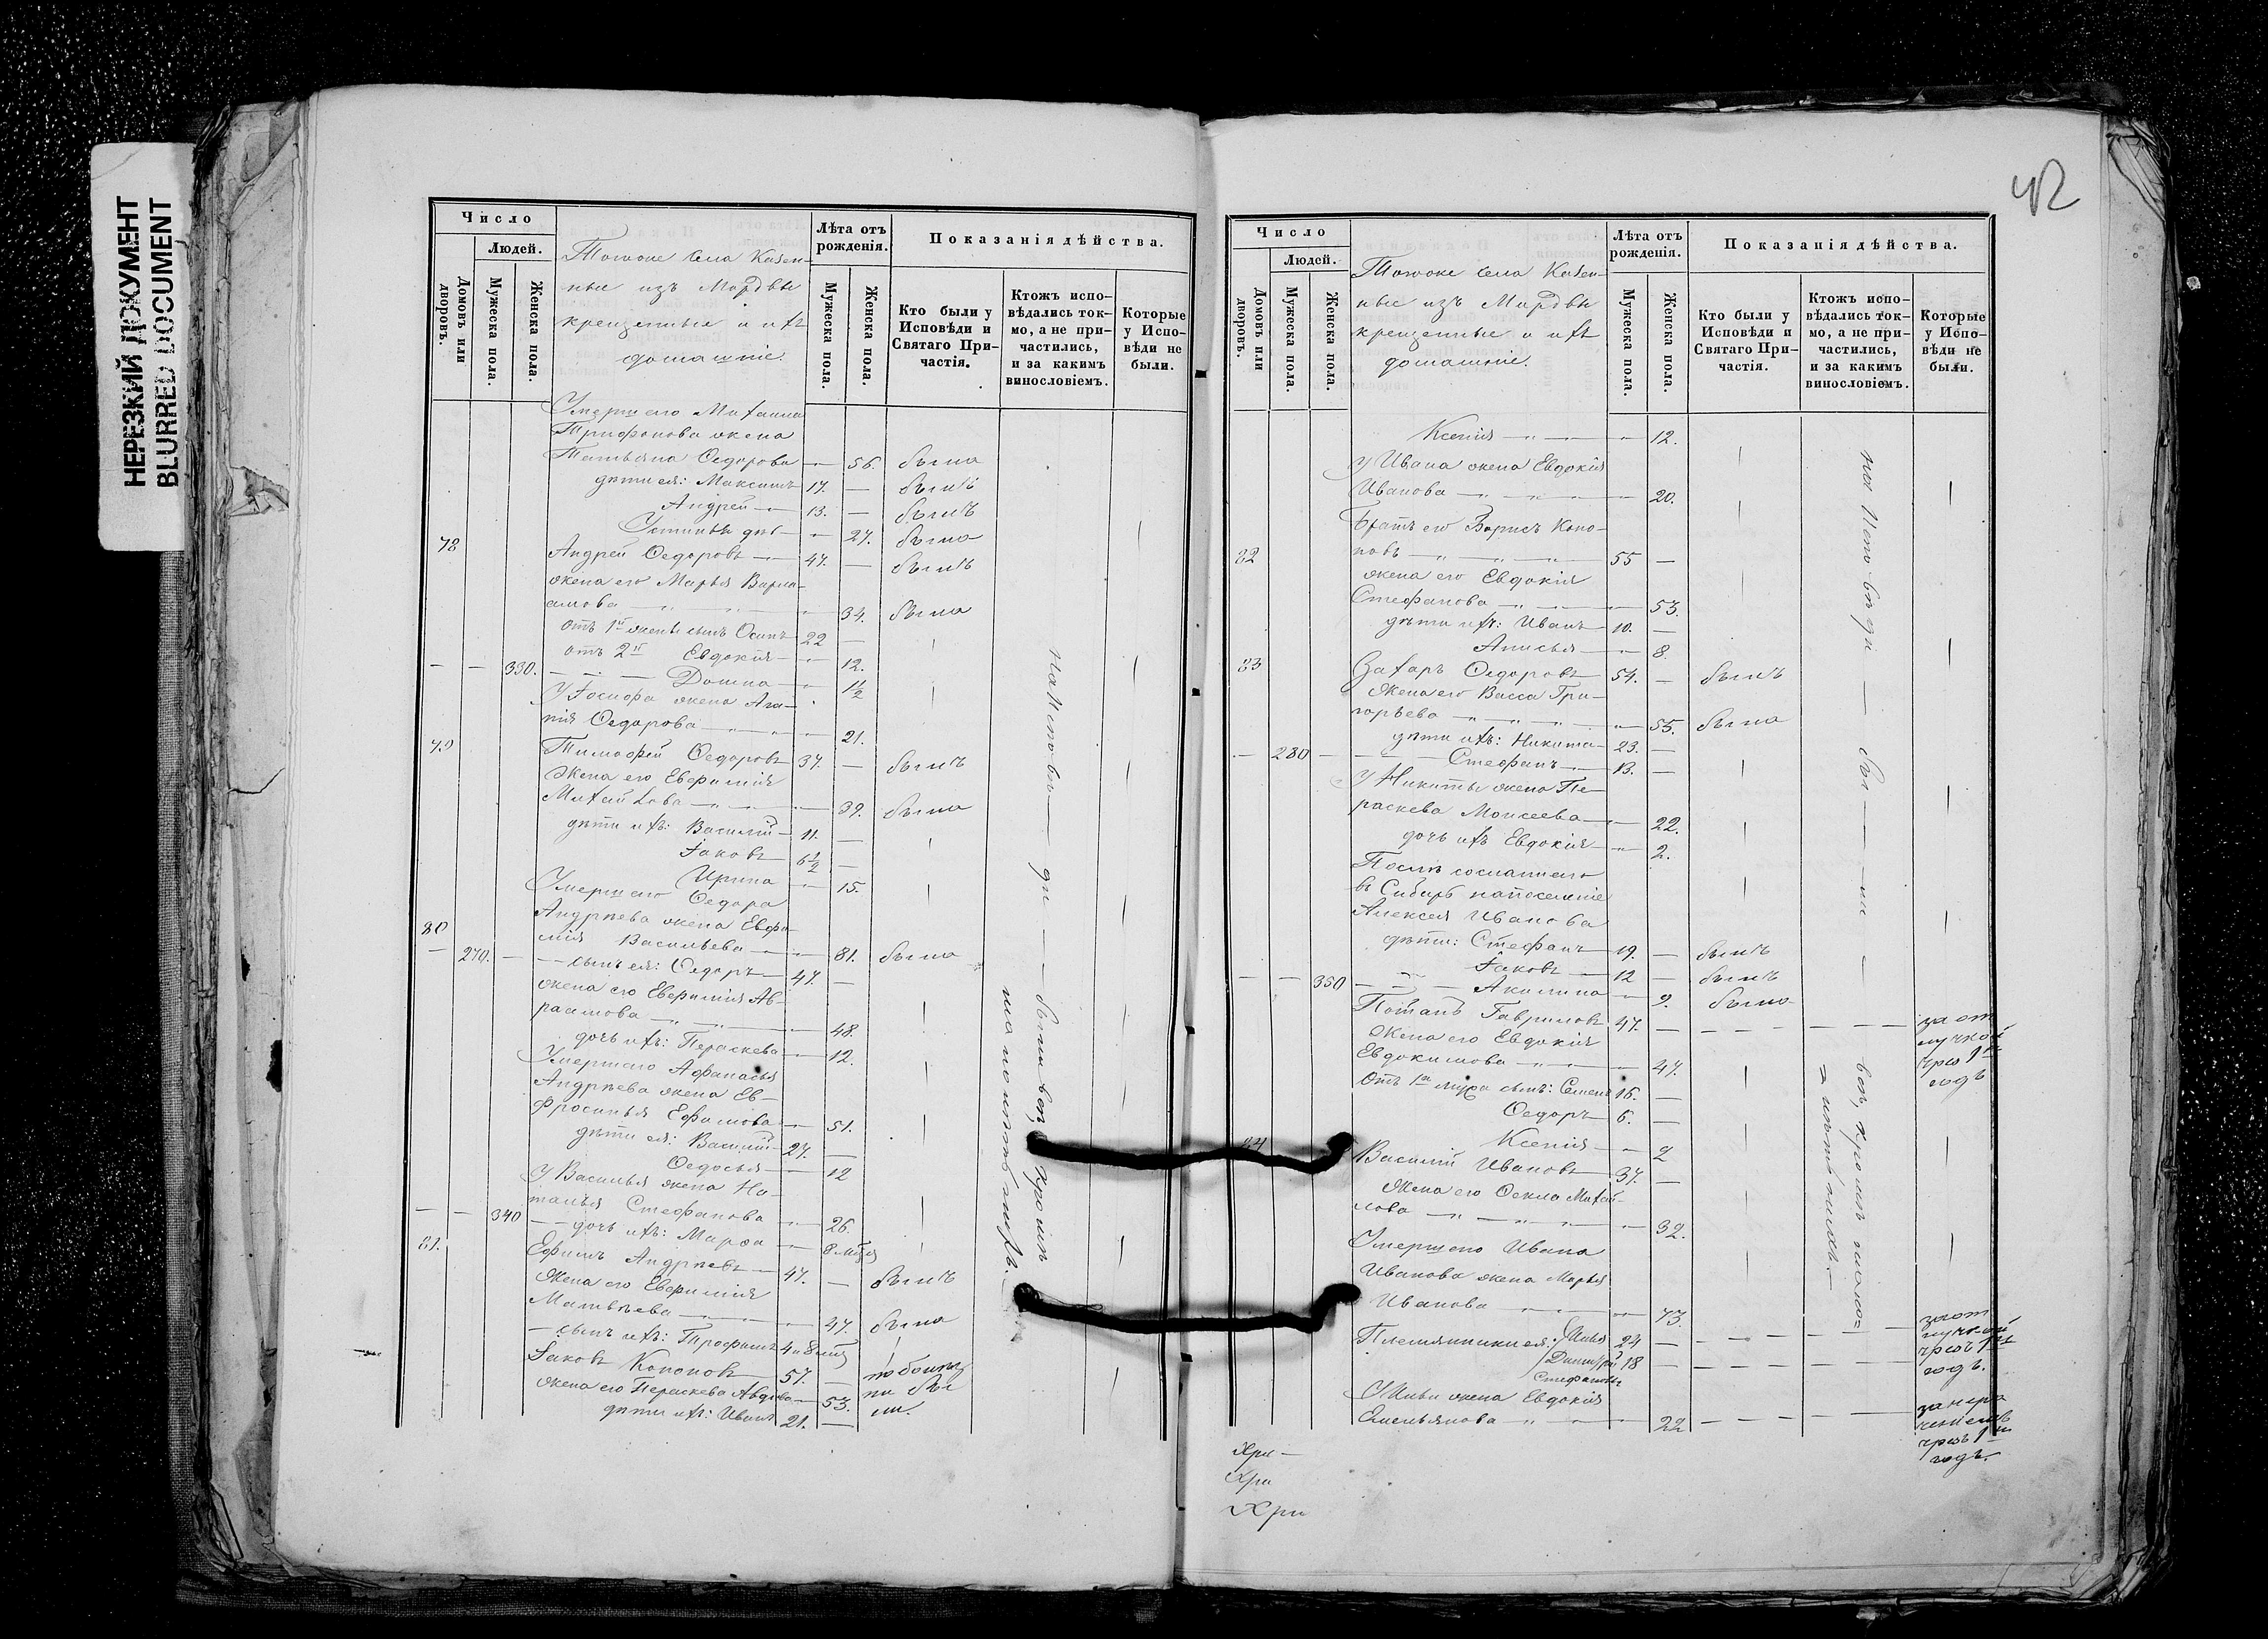 НЕРЕЗКИЙ ДОКУМЕНТ
BLURRED DOCUMENT
Число
Людей.
Домовъ или дворовъ.
Мужеска пола.
Женска пола.
Тогоже села Казен-
ные изъ Мордвы
крещенные и ихъ
домашніе.
Лѣта отъ рожденія.
Мужеска пола.
Женска пола.
Показанія дѣйства.
Кто были у Исповѣди и Святаго Причастія.
Ктожъ исповѣдались токмо, а не причастились, и за какимъ винословіемъ.
Которые у Исповѣди не были.
Умершаго Михаила
Трифонова жена
Татьяна Ѳедорова — 56. была
дѣти ея: Максимъ 17. — былъ
Андрей — 13. — былъ
Устинья — 27. была
78 Андрей Ѳедоровъ — 47. — былъ
жена его Марья Варла-
амова — 34. была
отъ 1й жены сынъ Осипъ 22 —
отъ 2й Евдокія — 12.
— — 330. Домна — 1½
У Іосифа жена Ага-
пія Ѳедорова — 21.
79 Тимофей Ѳедоровъ 37. — былъ
Жена его Евфимія
Михайлова — 39. была
дѣти ихъ: Василій — 11. —
Іаковъ 6½ —
Ирина — 15.
Умершаго Ѳедора
80 Андрѣева жена Евфи-
мія Васильева — 81. была
— 270. — сынъ ея: Ѳедоръ — 47. —
жена его Евфимія Ав-
раамова — 48.
дочь ихъ: Параскева — 12.
Умершаго Афанасья
Андрѣева жена Ев-
фросинья Ефимова — 51.
дѣти ея: Василій — 27. —
Ѳедосья — 12
У Василья жена На-
талья Стефанова — 26.
— — 340 дочь ихъ: Марфа — 8 мѣся
81. Ефимъ Андрѣевъ — 47. — былъ
Жена его Евфимія
Матвѣева — 47. была
сынъ ихъ: Трофимъ
Іаковъ Кононовъ 57. —
жена его Параскева 53.
дѣти ихъ: Иванъ 21. —
42
Число
Людей.
Домовъ или дворовъ.
Мужеска пола.
Женска пола.
Тогоже села Казен-
ные изъ Мордвы
крещенные и ихъ
домашніе.
Лѣта отъ рожденія.
Мужеска пола.
Женска пола.
Показанія дѣйства.
Кто были у Исповѣди и Святаго Причастія.
Ктожъ исповѣдались токмо, а не причастились, и за какимъ винословіемъ.
Которые у Исповѣди не были.
Ксенія — 12.
У Ивана жена Евдокія
Иванова — 20.
Братъ его Борисъ Коно-
82 новъ — 55 —
жена его Евдокія
Стефанова — 53.
дѣти ихъ: Иванъ 10. —
Анисья — 8.
83 Захаръ Ѳедоровъ 54. — былъ
Жена его Васса Гри-
горьева — 55. была
дѣти ихъ: Никита — 23. —
— 280 — Стефанъ — 13. —
У Никиты жена Па-
раскева Моисеева — 22.
дочь ихъ Евдокія — 2.
Послѣ сосланнаго
въ Сибирь на поселеніе
Алексея Иванова
дѣти: Стефанъ 19. — былъ
Іаковъ — 12 — былъ
— — 350 Акилина — 9. была
Потапъ Гавриловъ 47. — за от
лучкой
чрез 1й
годъ
Жена его Евдокія
Евдокимова — 47.
Отъ 1го мужа сынъ: Семенъ 16. —
Ѳедоръ 6. —
Ксенія — 2
84 Василій Ивановъ 37. —
Жена его Ѳекла Михай-
лова — 32.
Умершаго Ивана
Иванова жена Марья
Иванова — 73.
Племянники ея: Илья 24 — за от
лучкой
чрезъ 1й
годъ.
Димитрій 18 —
Стефановы
У Ильи жена Евдокія
Емельянова — 22
чрезъ 1й
годъ.
Хри —
Хри
Хри